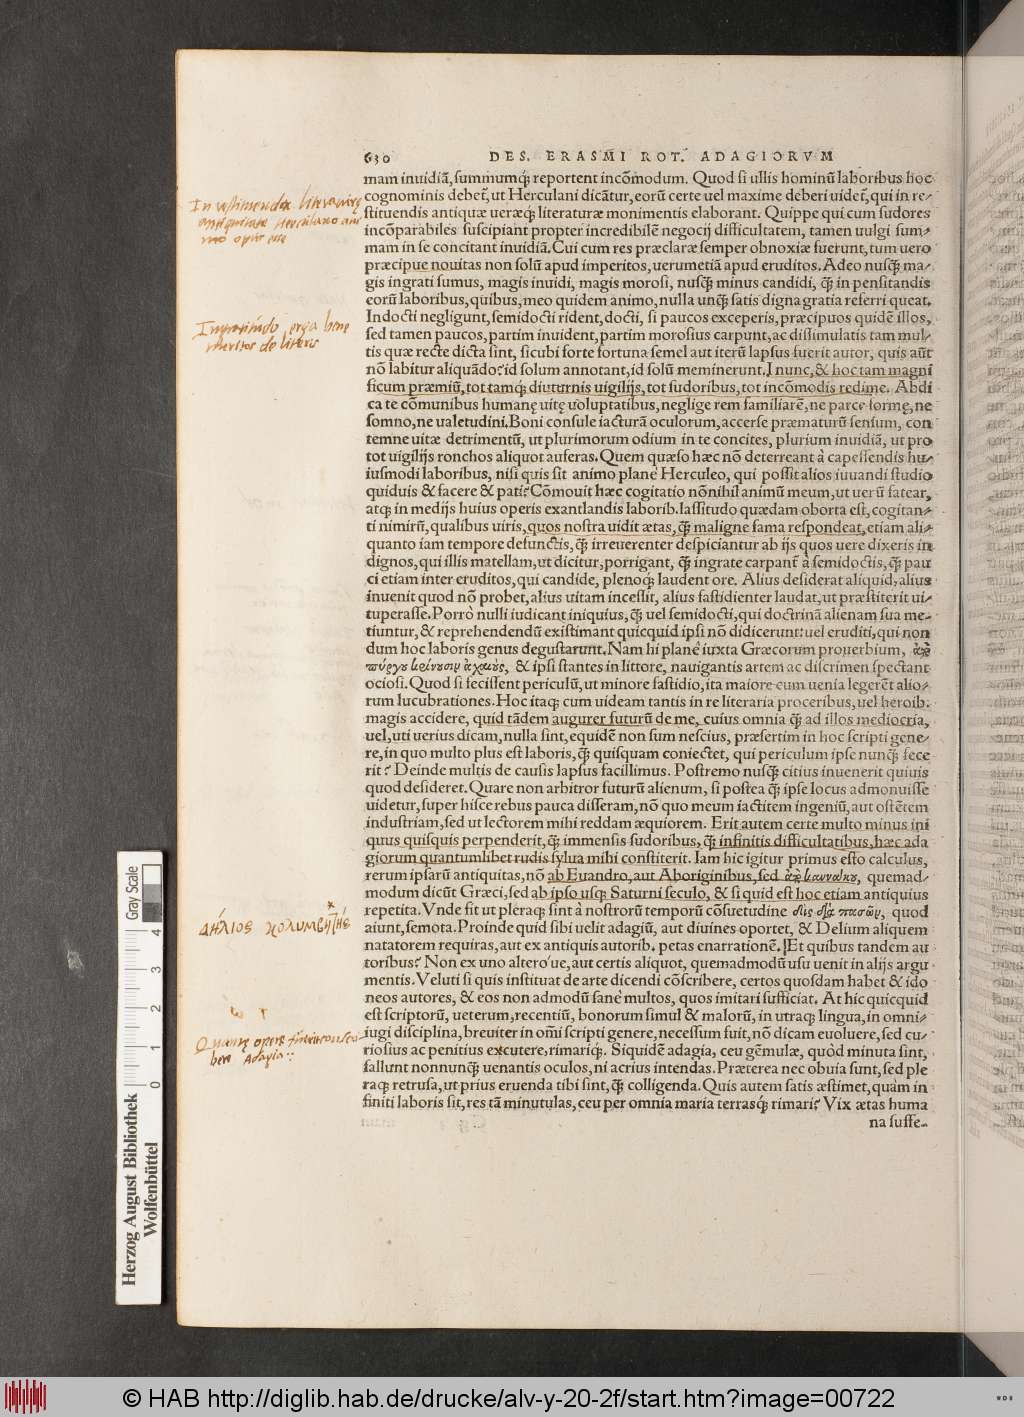 630 DES. ERASMI ROT. ADAGIORVM
mam inuidiã, summumq́; reportent incõmodum. Quod si ullis hominũ laboribus hoc
cognominis debet̃, ut Herculani dicãtur, eorũ certe uel maxime deberi uidet̃, qui in re-
stituendis antiquæ ueræq́; literaturæ monimentis elaborant. Quippe qui cum sudores
incõparabiles suscipiant propter incredibilẽ negocij difficultatem, tamen uulgi sum-
mam in se concitant inuidiã. Cui cum res præclaræ semper obnoxiæ fuerunt, tum uero
præcipue nouitas non solũ apud imperitos, uerumetiã apud eruditos. Adeo nusq̃; ma-
gis ingrati sumus, magis inuidi, magis morosi, nusq̃; minus candidi, q̃; in pensitandis
eorũ laboribus, quibus, meo quidem animo, nulla unq̃; satis digna gratia referri queat.
Indocti negligunt, semidocti rident, docti, si paucos exceperis, præcipuos quidẽ illos,
sed tamen paucos, partim inuident, partim morosius carpunt, ac dissimulatis tam mul-
tis quæ recte dicta sint, sicubi forte fortuna semel aut iterũ lapsus fuerit autor, quis aũt
nõ labitur aliquãdo? id solum annotant, id solũ meminerunt. I nunc, & hoc tam magni
ficum præmiũ, tot tamq́; diuturnis uigilijs, tot sudoribus, tot incõmodis redime. Abdi
ca te cõmunibus humanę uitę uoluptatibus, neglige rem familiarẽ, ne parce formę, ne
somno, ne ualetudini. Boni consule iacturã oculorum, accerse præmaturũ senium, con
temne uitæ detrimentũ, ut plurimorum odium in te concites, plurium inuidiã, ut pro
tot uigilijs ronchos aliquot auferas. Quem quæso hæc nõ deterreant à capessendis hu-
iusmodi laboribus, nisi quis sit animo planè Herculeo, qui possit alios iuuandi studio
quiduis & facere & pati? Cõmouit hæc cogitatio nõnihil animũ meum, ut uerũ fatear,
atq́; in medijs huius operis exantlandis laborib. lassitudo quædam oborta est, cogitan-
ti nimirũ, qualibus uiris, quos nostra uidit ætas, q̃; maligne fama respondeat, etiam ali-
quanto iam tempore defunctis, q̃; irreuerenter despiciantur ab ijs quos uere dixeris in
dignos, qui illis matellam, ut dicitur, porrigant, q̃; ingrate carpant̃ à semidoctis, q̃; pau
ci etiam inter eruditos, qui candide, plenoq́; laudent ore. Alius desiderat aliquid, alius
inuenit quod nõ probet, alius uitam incessit, alius fastidienter laudat, ut præstiterit ui-
tuperasse. Porrò nulli iudicant iniquius, q̃; uel semidocti, qui doctrinã alienam sua me-
tiuntur, & reprehendendũ existimant quicquid ipsi nõ didicerunt: uel eruditi, qui non
dum hoc laboris genus degustarunt. Nam hi planè iuxta Græcorum prouerbium, ἀπὸ
πύργου κρίνουσιν ἀχαιούς, & ipsi stantes in littore, nauigantis artem ac discrimen spectant
ociosi. Quod si fecissent periculũ, ut minore fastidio, ita maiore cum uenia legerẽt alio-
rum lucubrationes. Hoc itaq́; cum uideam tantis in re literaria proceribus, uel heroib.
magis accidere, quid tãdem augurer futurũ de me, cuius omnia q̃; ad illos mediocria,
uel, uti uerius dicam, nulla sint, equidẽ non sum nescius, præsertim in hoc scripti gene-
re, in quo multo plus est laboris, q̃; quisquam coniectet, qui periculum ipse nunq̃; fece
rit? Deinde multis de causis lapsus facillimus. Postremo nusq̃; citius inuenerit quiuis
quod desideret. Quare non arbitror futurũ alienum, si postea q̃; ipse locus admonuisse
uidetur, super hisce rebus pauca disseram, nõ quo meum iactitem ingeniũ, aut ostẽtem
industriam, sed ut lectorem mihi reddam æquiorem. Erit autem certe multo minus ini
quus quisquis perpenderit, q̃; immensis sudoribus, q̃; infinitis difficultatibus, hæc ada
giorum quantumlibet rudis sylua mihi constiterit. Iam hic igitur primus esto calculus,
rerum ipsarũ antiquitas, nõ ab Euandro, aut Aboriginibus, sed ἀπὸ καννάκου, quemad-
modum dicũt Græci, sed ab ipso usq́; Saturni seculo, & si quid est hoc etiam antiquius
repetita. Vnde fit ut pleraq́; sint à nostrorũ temporũ cõsuetudine δὶς διὰ πασῶν, quod
aiunt, semota. Proinde quid sibi uelit adagiũ, aut diuines oportet, & Delium aliquem
natatorem requiras, aut ex antiquis autorib. petas enarrationẽ. Et quibus tandem au
toribus? Non ex uno altero'ue, aut certis aliquot, quemadmodũ usu uenit in alijs argu
mentis. Veluti si quis instituat de arte dicendi cõscribere, certos quosdam habet & ido
neos autores, & eos non admodũ sanè multos, quos imitari sufficiat. At hic quicquid
est scriptorũ, ueterum, recentiũ, bonorum simul & malorũ, in utraq́; lingua, in omni-
iugi disciplina, breuiter in om̃i scripti genere, necessum fuit, nõ dicam euoluere, sed cu-
riosius ac penitius excutere, rimariq́;. Siquidẽ adagia, ceu gẽmulæ, quòd minuta sint,
fallunt nonnunq̃; uenantis oculos, ni acrius intendas. Præterea nec obuia sunt, sed ple
raq́; retrusa, ut prius eruenda tibi sint, q̃; colligenda. Quis autem satis æstimet, quàm in
finiti laboris sit, res tã minutulas, ceu per omnia maria terrasq́; rimari? Vix ætas huma
na suffe-
In restituenda literarię
antiquitate Herculano ani
mo opus esse
Ingratitudo erga bene
meritos de literis
ΔΗΛΙΟΣ ΚΟΛΥΜΒΗΤΗΣ
ω τ
beri Adagia
Gray Scale
0 1 2 3 4
Herzog August Bibliothek
Wolfenbüttel
© HAB http://diglib.hab.de/drucke/alv-y-20-2f/start.htm?image=00722